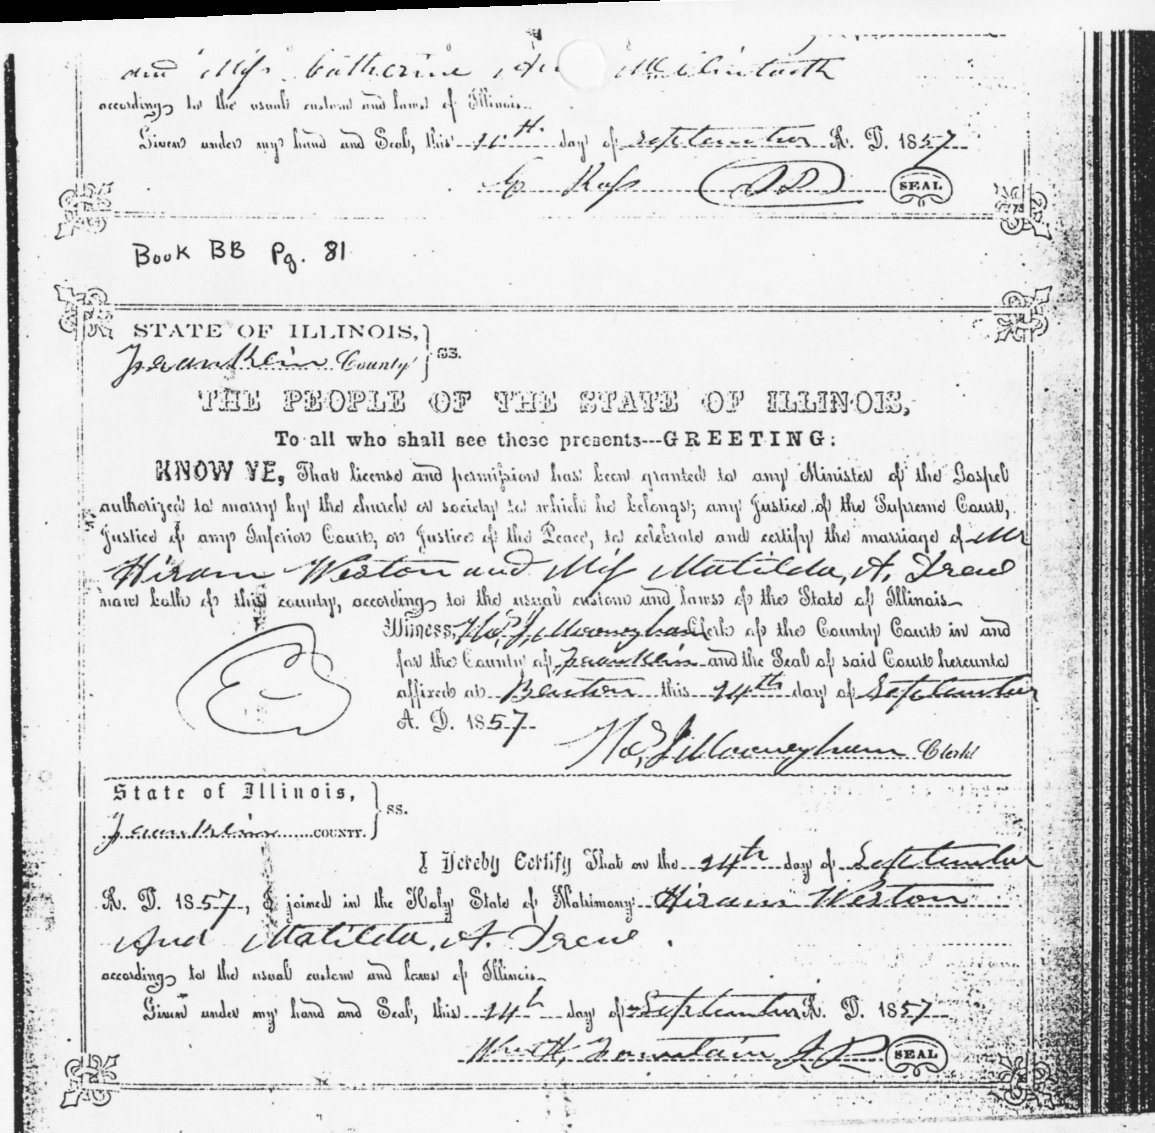 and Miss Catherine
according to the usual custom and laws of Illinois.
Given under my hand and Seal, this 11th day of September A. D. 1857
SEAL
Book BB Pg. 81
STATE OF ILLINOIS,
Franklin County } SS.
THE PEOPLE OF THE STATE OF ILLINOIS,
To all who shall see these presents---GREETING:
KNOW YE, That license and permission has been granted to any Minister of the Gospel
authorized to marry by the church or society to which he belongs; any Justice of the Supreme Court,
Justice of any Inferior Court, or Justice of the Peace, to celebrate and certify the marriage of Mr
Hiram Weston and Miss Matilda, A. Irene
now both of this county, according to the usual custom and laws of the State of Illinois.
Witness, Mooneyham Clerk of the County Court in and
for the County of Franklin and the Seal of said Court hereunto
affixed at Benton this 24th day of September
A. D. 1857
Mooneyham Clerk
State of Illinois,
Franklin COUNTY. } SS.
I Hereby Certify That on the 24th day of September
A. D. 1857, I joined in the Holy State of Matrimony Hiram Weston
And Matilda, A. Irene.
according to the usual custom and laws of Illinois.
Given under my hand and Seal, this 24th day of September A. D. 1857
Fountain J.P. SEAL